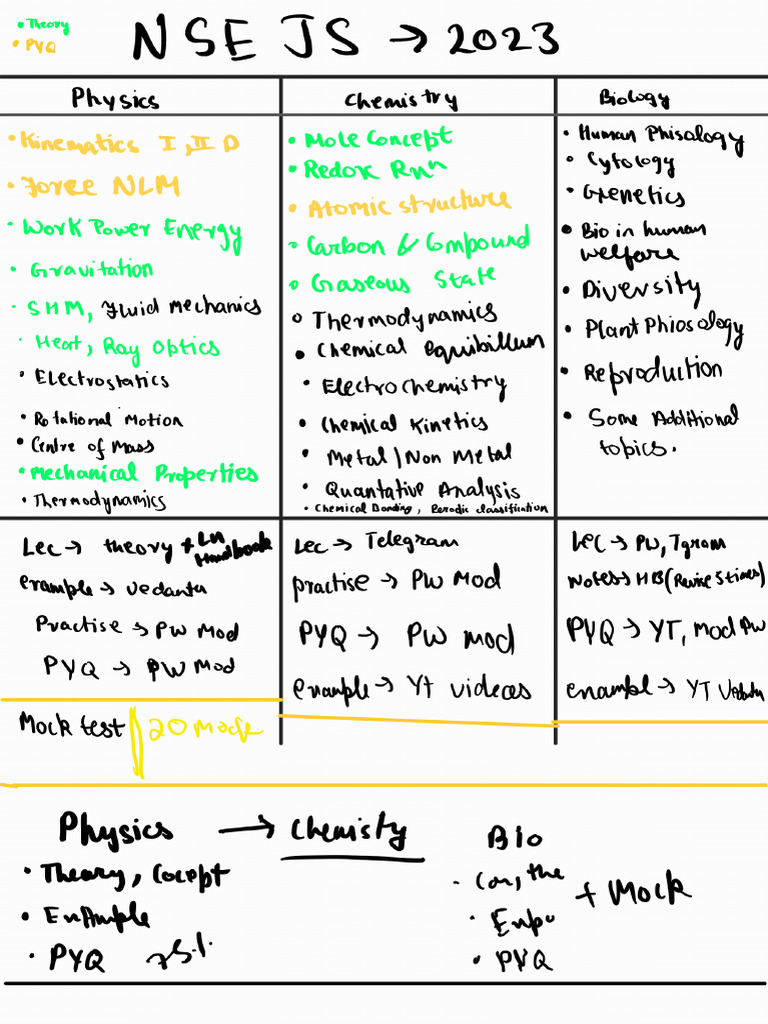 • Theory
• PYQ
NSEJS → 2023
Physics
• Kinematics I, II D
• Force NLM
• Work Power Energy
• Gravitation
• SHM, Fluid Mechanics
• Heat, Ray Optics
• Electrostatics
• Rotational Motion
• Centre of Mass
• Mechanical Properties
• Thermodynamics
Chemistry
• Mole Concept
• Redox Rnn
• Atomic structure
• Carbon & Compound
• Gaseous State
• Thermodynamics
• Chemical equibillum
• Electrochemistry
• Chemical Kinetics
• Metal / Non Metal
• Quantative Analysis
• Chemical Bonding, Periodic classification
Biology
• Human Phisalogy
• Cytology
• Genetics
• Bio in human
welfare
• Diversity
• Plant Phiosology
• Reproduction
• Some Additional
topics.
Lec → theory +
Handbook
example → vedantu
Practise → PW Mod
PYQ → PW Mod
Lec → Telegram
practise → PW Mod
PYQ → PW mod
example → Yt videoes
Lec → PW, Tgram
Notes → HB (Revise 5 times)
PYQ → YT, Mod PW
exampl → YT
Mock test 20 mock
Physics → Chemisty
• Theory, Cocept
• Example
• PYQ
Bio
• Con, the
•
• PYQ
+ Mock